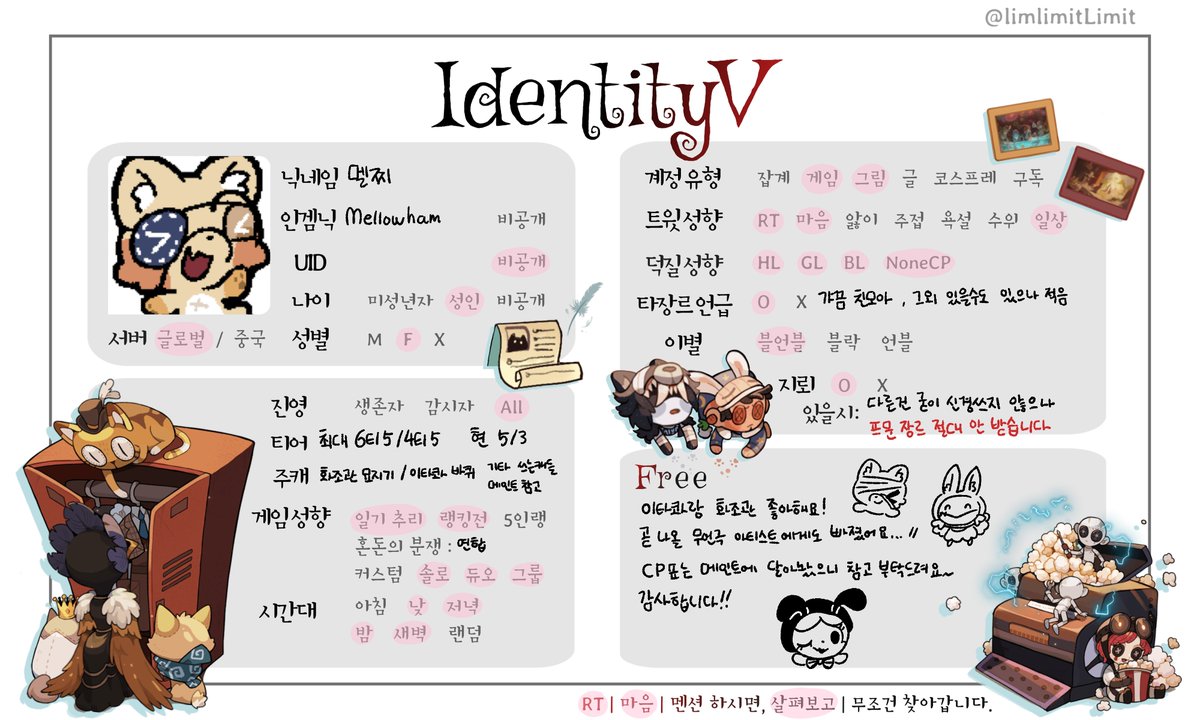 @limlimitLimit
IdentityV
닉네임 멜찌
인겜닉 Mellowham 비공개
UID 비공개
나이 미성년자 성인 비공개
서버 글로벌 / 중국 성별 M F X
진영 생존자 감시자 All
티어 최대 6티5/4티5 현 5/3
주캐 화조관 묘지기 / 이타콰 바퀴 기타 쓰는캐들
메인트 참고
게임성향 일기 추리 랭킹전 5인랭
혼돈의 분쟁 : 연합
커스텀 솔로 듀오 그룹
시간대 아침 낮 저녁
밤 새벽 랜덤
계정 유형 잡계 게임 그림 글 코스프레 구독
트윗성향 RT 마음 앓이 주접 욕설 수위 일상
덕질성향 HL GL BL NoneCP
타장르언급 O X 가끔 친모아 , 그외 있을수도 있으나 적음
이별 블언블 블락 언블
지뢰 O X
있을시: 다른건 굳이 신경쓰지 않으나
프문 장르 절대 안 받습니다
Free
이타콰랑 화조관 좋아해요!
곧 나올 무언극 아티스트에게도 빠졌어요...//
CP표는 메인트에 달아놨으니 참고 부탁드려요~
감사합니다!!
RT | 마음 | 멘션 하시면, 살펴보고 | 무조건 찾아갑니다.